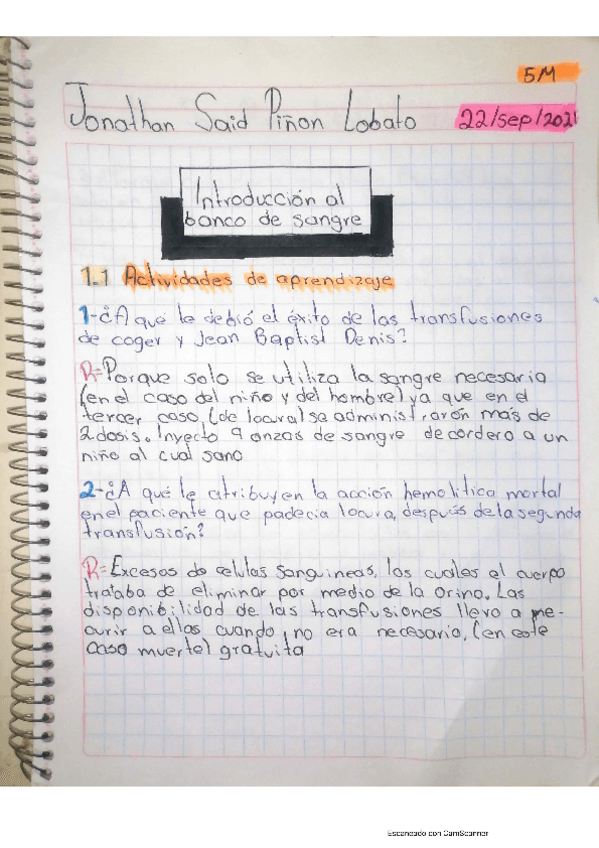 5M
Jonathan Said Piñon Lobato 22/sep/2021
Introducción al
banco de sangre
1.1 Actividades de aprendizaje
1-¿A que le debió el éxito de las transfusiones
de coger y Jean Baptist Denis?
R=Porque solo se utiliza la sangre necesaria
(en el caso del niño y del hombre) ya que en el
tercer caso (de locura) se administrarón más de
2 dosis. Inyecto 9 onzas de sangre de cordero a un
niño al cual sano
2-¿A qué le atribuyen la acción hemolitica mortal
en el paciente que padecia locura, después de la segunda
transfusión?
R=Excesos de celulas sanguineas, las cuales el cuerpo
trataba de eliminar por medio de la orina. Las
disponibilidad de las transfusiones llevo a re-
currir a ellas cuando no era necesario, (en este
caso muerte) gratuita
Escaneado con CamScanner